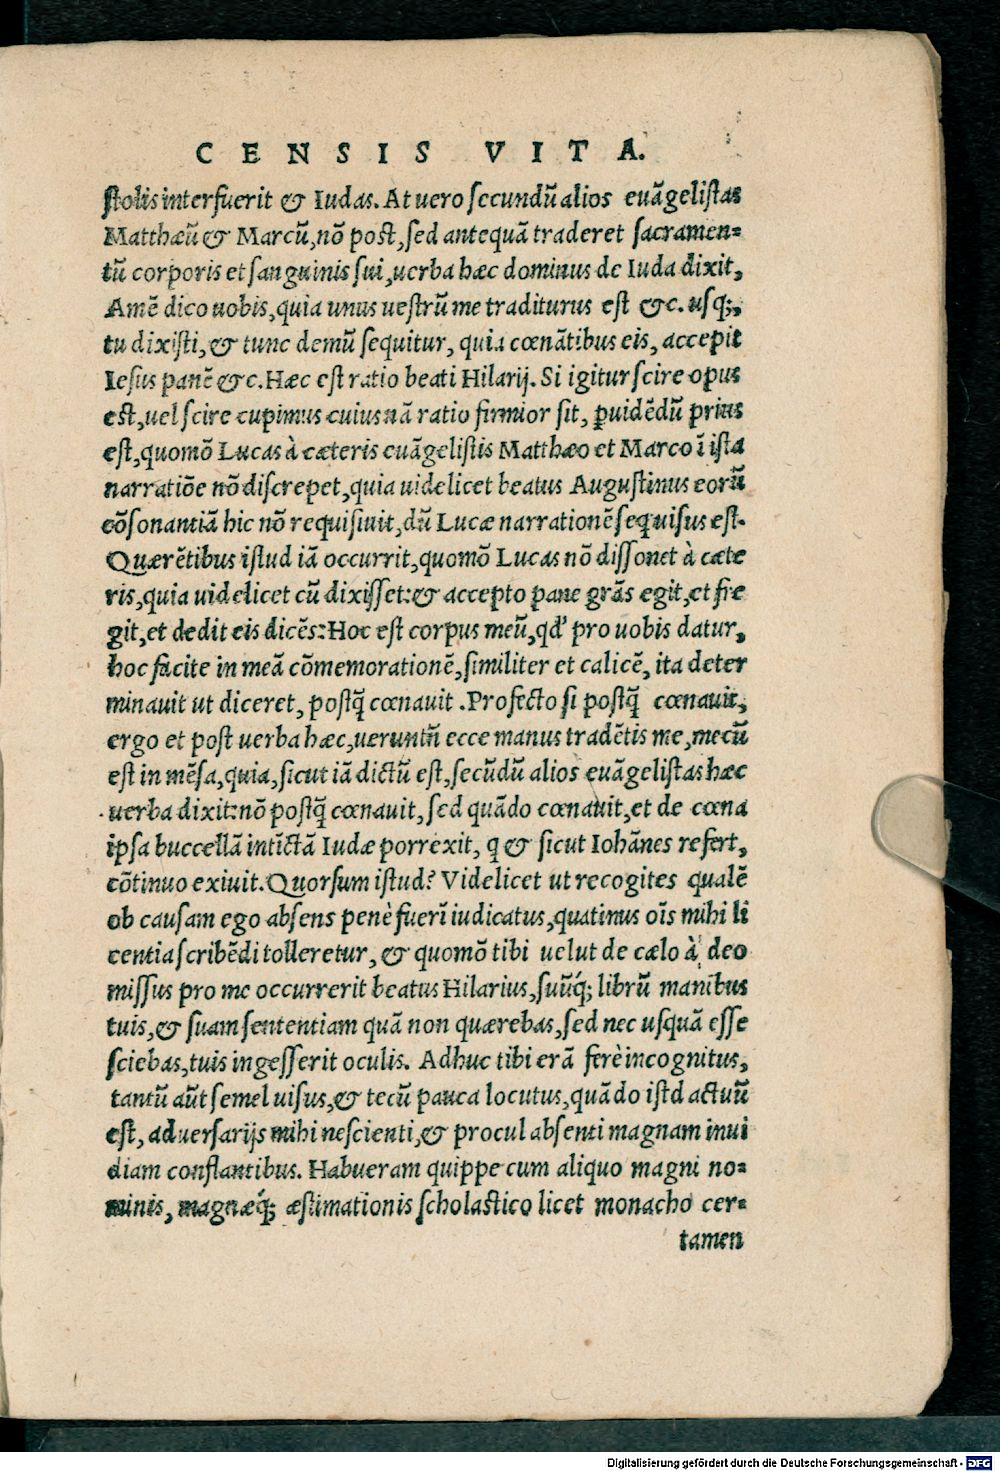 CENSIS VITA.
stolis interfuerit & Iudas. At uero secundũ alios euãgelistas
Matthæũ & Marcũ, nõ post, sed antequã traderet sacramen=
tũ corporis et sanguinis sui, uerba hæc dominus de Iuda dixit,
Amẽ dico uobis, quia unus uestrũ me traditurus est &c. usq;,
tu dixisti, & tunc demũ sequitur, quia cœnãtibus eis, accepit
Iesus panẽ &c. Hæc est ratio beati Hilarij. Si igitur scire opus
est, uel scire cupimus cuius nã ratio firmior sit, ꝑuidẽdũ prius
est, quomõ Lucas à cæteris euãgelistis Matthæo et Marco ĩ ista
narratiõe nõ discrepet, quia uidelicet beatus Augustinus eorũ
cõsonantiã hic nõ requisiuit, dũ Lucæ narrationẽ sequisus est.
Quærẽtibus istud iã occurrit, quomõ Lucas nõ dissonet à cæte
ris, quia uidelicet cũ dixisset: & accepto pane grãs egit, et fre
git, et dedit eis dicẽs: Hoc est corpus meũ, qd' pro uobis datur,
hoc facite in meã cõmemorationẽ, similiter et calicẽ, ita deter
minauit ut diceret, postq̃ cœnauit. Profecto si postq̃ cœnauit,
ergo et post uerba hæc, ueruntñ ecce manus tradẽtis me, mecũ
est in mẽsa, quia, sicut iã dictũ est, secũdũ alios euãgelistas hæc
uerba dixit: nõ postq̃ cœnauit, sed quãdo cœnauit, et de cœna
ipsa buccellã intĩctã Iudæ porrexit, q & sicut Iohãnes refert,
cõtinuo exiuit. Quorsum istud? Videlicet ut recogites qualẽ
ob causam ego absens penè fuerĩ iudicatus, quatinus oĩs mihi li
centia scribẽdi tolleretur, & quomõ tibi uelut de cælo à deo
missus pro me occurrerit beatus Hilarius, suũq́; librũ manibus
tuis, & suam sententiam quã non quærebas, sed nec usquã esse
sciebas, tuis ingesserit oculis. Adhuc tibi erã ferè incognitus,
tantũ aũt semel uisus, & tecũ pauca locutus, quãdo istd actuũ
est, aduersarijs mihi nescienti, & procul absenti magnam inui
diam conflantibus. Habueram quippe cum aliquo magni no=
minis, magnæq́; æstimationis scholastico licet monacho cer=
tamen
Digitalisierung gefördert durch die Deutsche Forschungsgemeinschaft - DFG